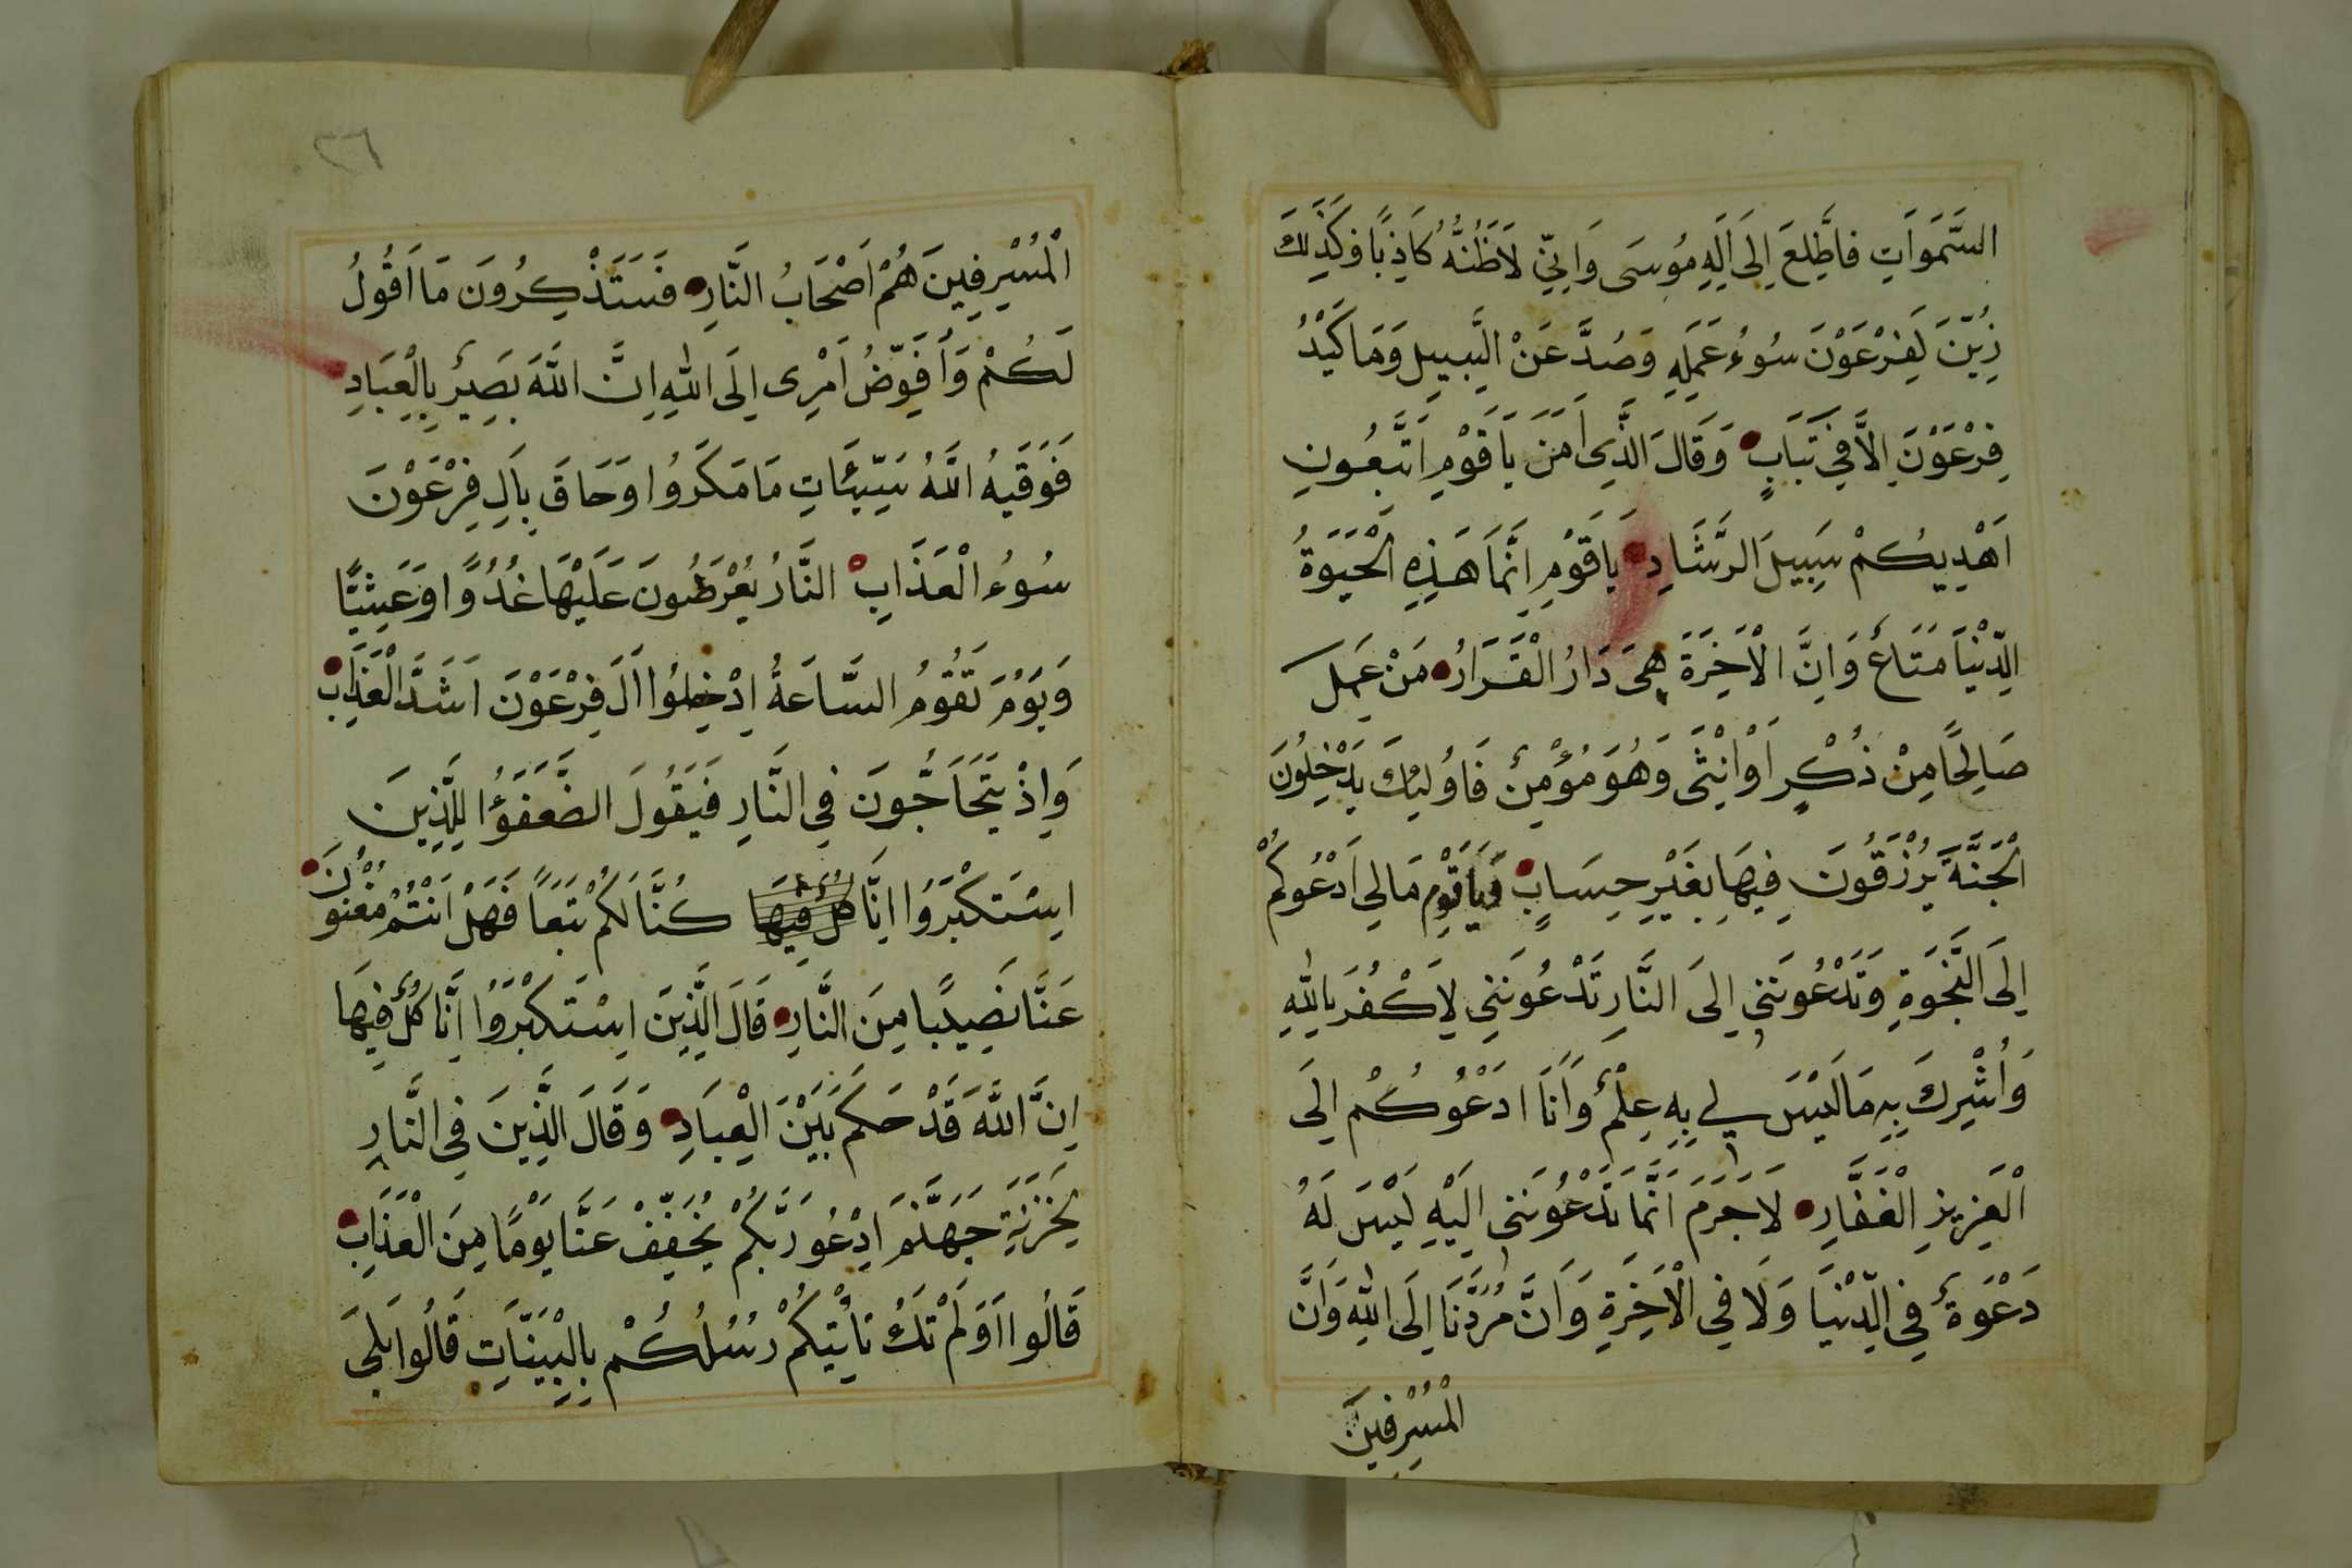 السَّمَوَاتِ فَاطَّلِعَ اِلَى اِلَهِ مُوسَى وَاِنِّي لَاَظُنُّهُ كَاذِبًا وَكَذَلِكَ
زُيِّنَ لِفِرْعَوْنَ سُوءُ عَمَلِهِ وَصُدَّ عَنْ السَّبِيلِ وَمَا كَيْدُ
فِرْعَوْنَ اِلَّا فِي تَبَابٍ وَقَالَ الَّذِي اَمَنَ يَا قَوْمِ اتَّبِعُونِ
اَهْدِيكُمْ سَبِيلَ الرَّشَادِ يَا قَوْمِ اِنَّمَا هَذِهِ الْحَيَوةُ
الدُّنْيَا مَتَاعٌ وَاِنَّ الْاَخِرَةَ هِيَ دَارُ الْقَرَارُ مَنْ عَمِلَ
صَالِحًا مِنْ ذُكْرٍ اَوْ اُنْثَى وَهُوَ مُؤْمِنٌ فَاوُلَئِكَ يَدْخِلُونَ
الْجَنَّةَ يُرْزَقُونَ فِيهَا بِغَيْرِ حِسَابٍ وَيَا قَوْمِ مَا لِي اَدْعُوكُمْ
اِلَى النَّجَوةِ وَتَدْعُونَنِي اِلَى النَّارِ تَدْعُونَنِي لِاَكْفُرَ بِاللّٰهِ
وَاُشْرِكَ بِهِ مَا لَيْسَ لِي بِهِ عِلْمٌ وَاَنَا اَدْعُوكُمْ اِلَى
الْعَزِيزِ الْغَفَّارِ لَا جَرَمَ اَنَّمَا تَدْعُونَنِي اِلَيْهِ لَيْسَ لَهُ
دَعْوَةٌ فِي الدُّنْيَا وَلَا فِي الْاَخِرَةِ وَاَنَّ مَرَدَّنَا اِلَى اللّٰهِ وَاَنَّ
الْمُسْرِفِينَ
٢٦
الْمُسْرِفِينَ هُمْ اَصْحَابُ النَّارِ فَسَتَذْكِرُونَ مَا اَقُولُ
لَكُمْ وَاُفَوِّضُ اَمْرِى اِلَى اللّٰهِ اِنَّ اللّٰهَ بَصِيرٌ بِالْعِبَادِ
فَوَقَيهُ اللّٰهُ سَيِّئَاتِ مَا مَكَرُوا وَحَاقَ بِاَلِ فِرْعَوْنَ
سُوءُ الْعَذَابِ النَّارُ يُعْرَضُونَ عَلَيْهَا غُدُوًّا وَعَشِيًّا
وَيَوْمَ تَقُومُ السَّاعَةُ ادْخِلُوا اَلَ فِرْعَوْنَ اَشَدَّ الْعَذَابِ
وَاِذْ يَتَحَاجُّونَ فِي النَّارِ فَيَقُولَ الضُّعَفَؤُا لِلَّذِينَ
اسْتَكْبَرُوا اِنَّا كُلٌّ فِيهَا كُنَّا لَكُمْ تَبَعًا فَهَلْ اَنْتُمْ مُغْنُونَ
عَنَّا نَصِيبًا مِنَ النَّارِ قَالَ الَّذِينَ اسْتَكْبَرُوا اِنَّا كُلٌّ فِيهَا
اِنَّ اللّٰهَ قَدْ حَكَمَ بَيْنَ الْعِبَادِ وَقَالَ الَّذِينَ فِي النَّارِ
لِخَزَنَةِ جَهَنَّمَ ادْعُو رَبَّكُمْ يُخَفِّفْ عَنَّا يَوْمًا مِنَ الْعَذَابِ
قَالُوا اَوَلَمْ تَكُ تَاْتِيكُمْ رُسُلُكُمْ بِالْبَيِّنَاتِ قَالُوا بَلَى